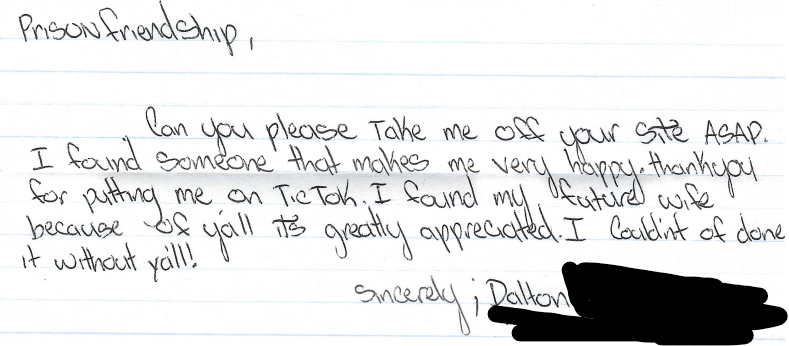 Prisonfriendship,
Can you please Take me off your site ASAP.
I found someone that makes me very happy. thankyou
for putting me on TicTok. I found my future wife
because of y'all it's greatly appreciated. I Could'nt of done
it without ya'll!
Sincerely; Dalton